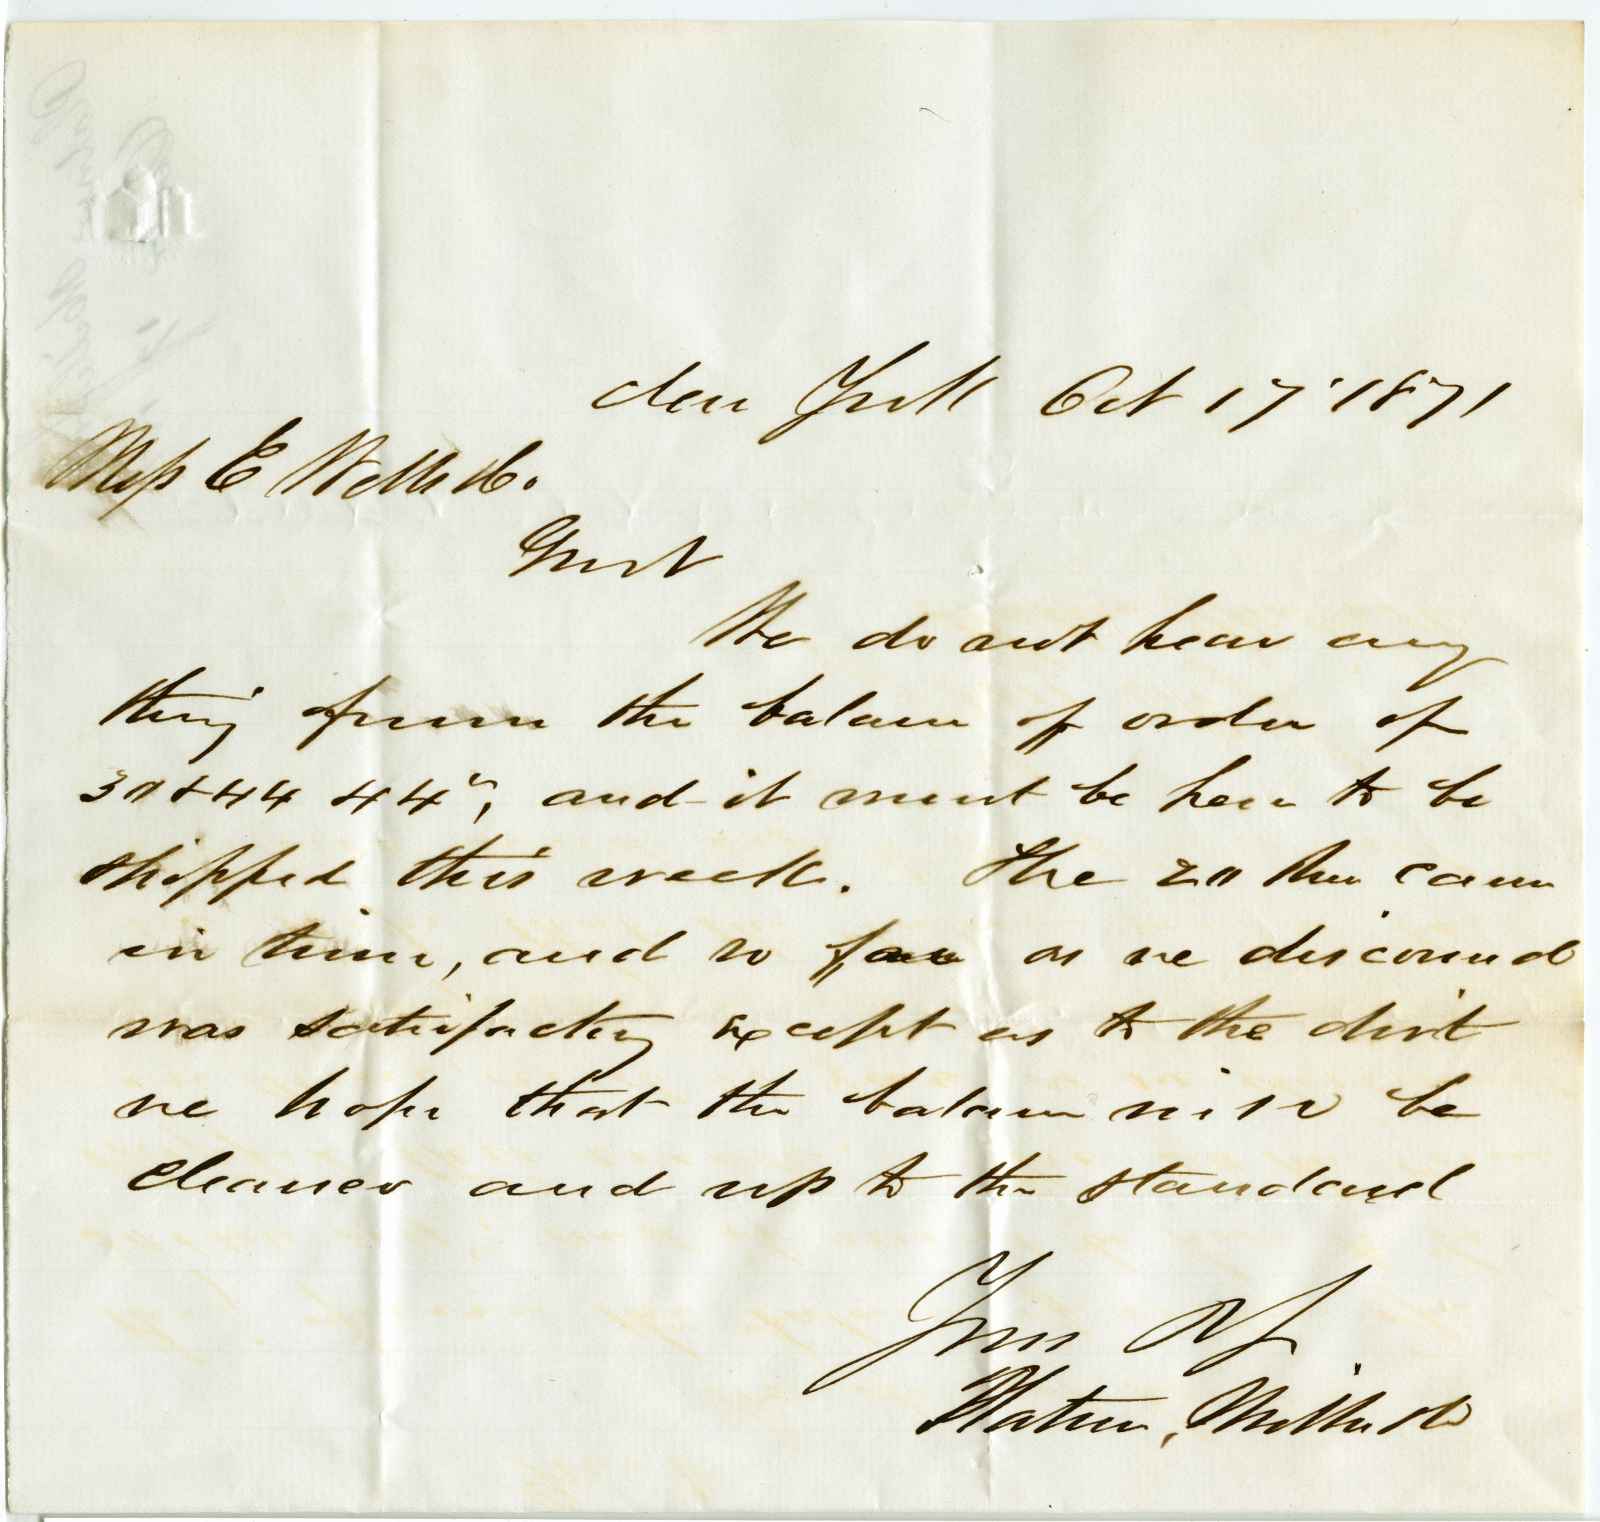 New York Oct 17 1871
Mess E Wells & Co.
Gent
We do not hear any
thing from the balance of order of
44", and it must be here to be
shipped this week. The came
in time, and so far as we discovered
was satisfactory except as to the dirt
we hope that the balance will be
cleaner and up to the standard
Yours
Miller & Co